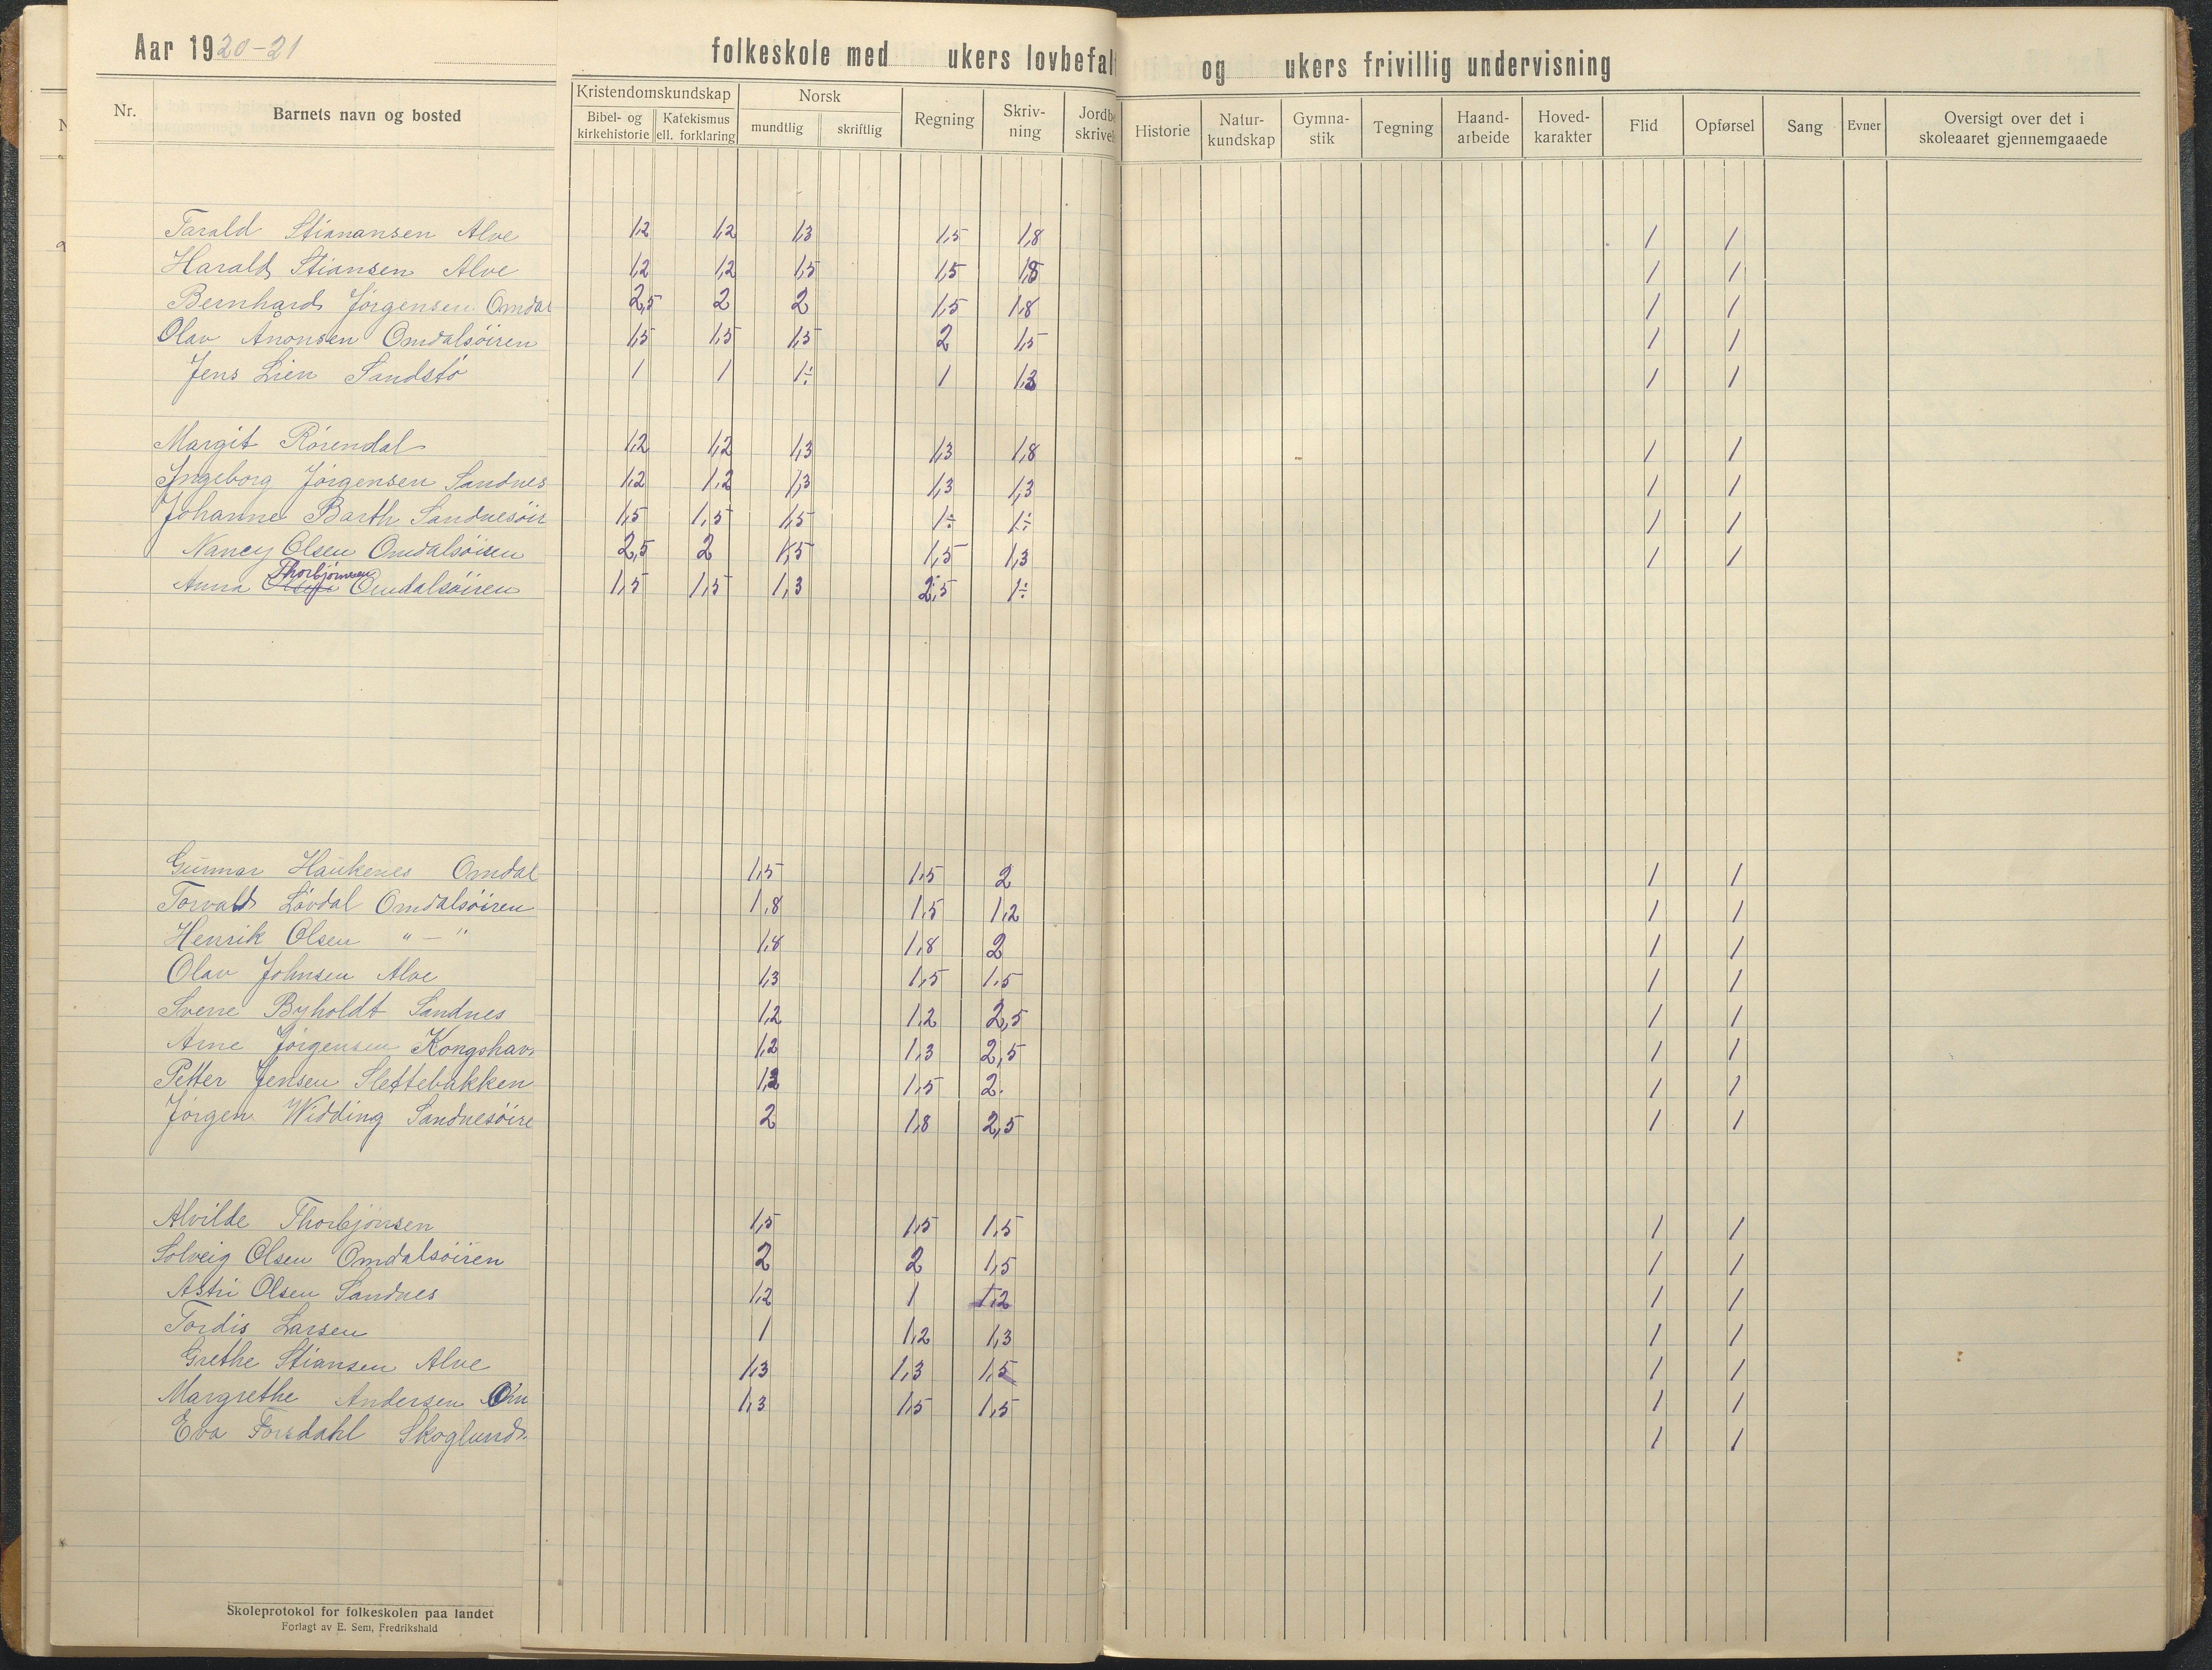 Aar 1920-21
folkeskole med ukers lovbefal og ukers frivillig undervisning
Nr. Barnets navn og bosted Kristendomskundskap Bibel- og kirkehistorie Katekismus ell. forklaring Norsk mundtlig skriftlig Regning Skriv-ning Jordbe skrivel Historie Natur-kundskap Gymna-stik Tegning Haand-arbeide Hoved-karakter Flid Opførsel Sang Evner Oversigt over det i skoleaaret gjennemgaaede
Tarald Stianansen Alve 1,2 1,2 1,3 1,5 1,8 1 1
Harald Stiansen Alve 1,2 1,2 1,5 1,5 1,8 1 1
Bernhard Jörgensen Omdal 2,5 2 2 1,5 1,8 1 1
Olav Anonsen Omdalsöiren 1,5 1,5 1,5 2 1,5 1 1
Jens Lien Sandstö 1 1 1÷ 1 1,3 1 1
Margit Rörendal 1,2 1,2 1,3 1,3 1,8 1 1
Ingeborg Jörgensen Sandnes 1,2 1,2 1,3 1,3 1,3 1 1
Johanne Barth Sandnesöir 1,5 1,5 1,5 1÷ 1÷ 1 1
Nancy Olsen Omdalsöiren 2,5 2 1,5 1,5 1,3 1 1
Anna Thorbjörnsen Omdalsöiren 1,5 1,5 1,3 2,5 1÷
Gunnar Haukenes Omdal 1,5 1,5 2 1 1
Torvald Lövdal Omdalsöiren 1,8 1,5 1,2 1 1
Henrik Olsen " — " 1,8 1,8 2 1 1
Olav Johnsen Alve 1,3 1,5 1,5 1 1
Sverre Byholdt Sandnes 1,2 1,2 2,5 1 1
Arne Jörgensen Kongshavn 1,2 1,3 2,5 1 1
Petter Jensen Slettebakken 1,2 1,5 2 1 1
Jörgen Widding Sandnesöire 2 1,8 2,5 1 1
Alvilde Thorbjörnsen 1,5 1,5 1,5 1 1
Solveig Olsen Omdalsöiren 2 2 1,5 1 1
Astri Olsen Sandnes 1,2 1 1,2 1 1
Tordis Larsen 1 1,2 1,3 1 1
Grethe Stiansen Alve 1,3 1,3 1,5 1 1
Margrethe Andersen Om 1,3 1,5 1,5 1 1
Eva Forsdahl Skoglund 1 1
Skoleprotokol for folkeskolen paa landet
Forlagt av E. Sem, Fredrikshald